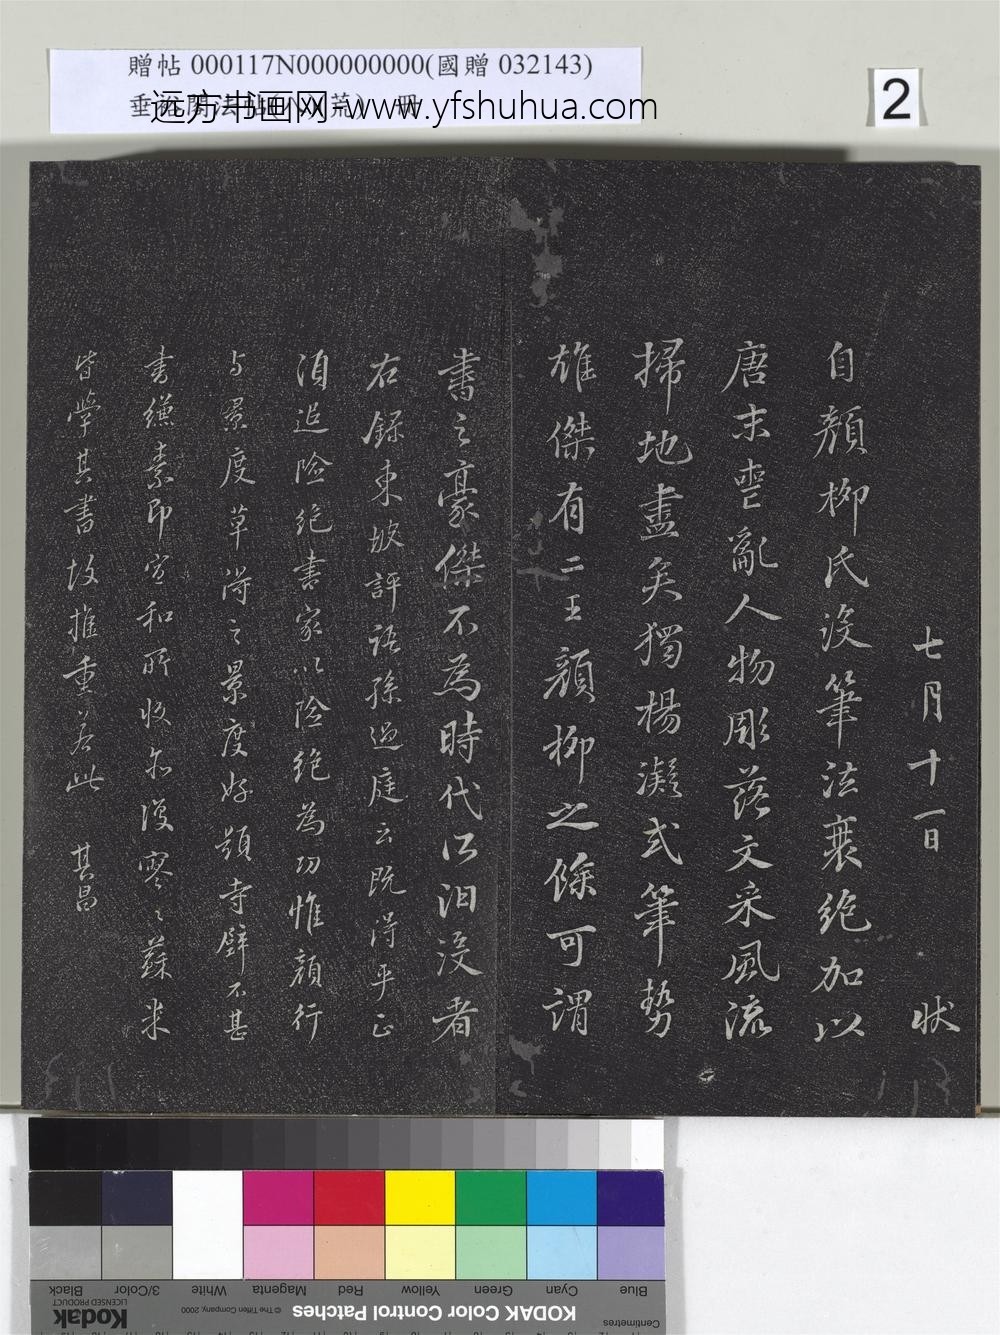 贈帖 000117N000000000(國贈 032143)
远方书画网-www.yfshuhua.com
2
七月十一日 状
自顏柳氏沒筆法衰絕加以
唐末喪亂人物彫落文采風流
掃地盡矣獨楊凝式筆勢
雄傑有二王顏柳之餘可謂
書之豪傑不為時代所汩沒者
右錄東坡評語孫過庭云既得平正
須追險絕書家以險絕為功惟顏行
与景度草得之景度好題寺壁不甚
書縑素即宣和所收亦復寥〻蘇米
皆學其書故推重若此 其昌
Blue Cyan Green Yellow Red Magenta White 3/Color Black
Centimetres
KODAK Color Control Patches
© The Tiffen Company, 2000
Kodak
LICENSED PRODUCT